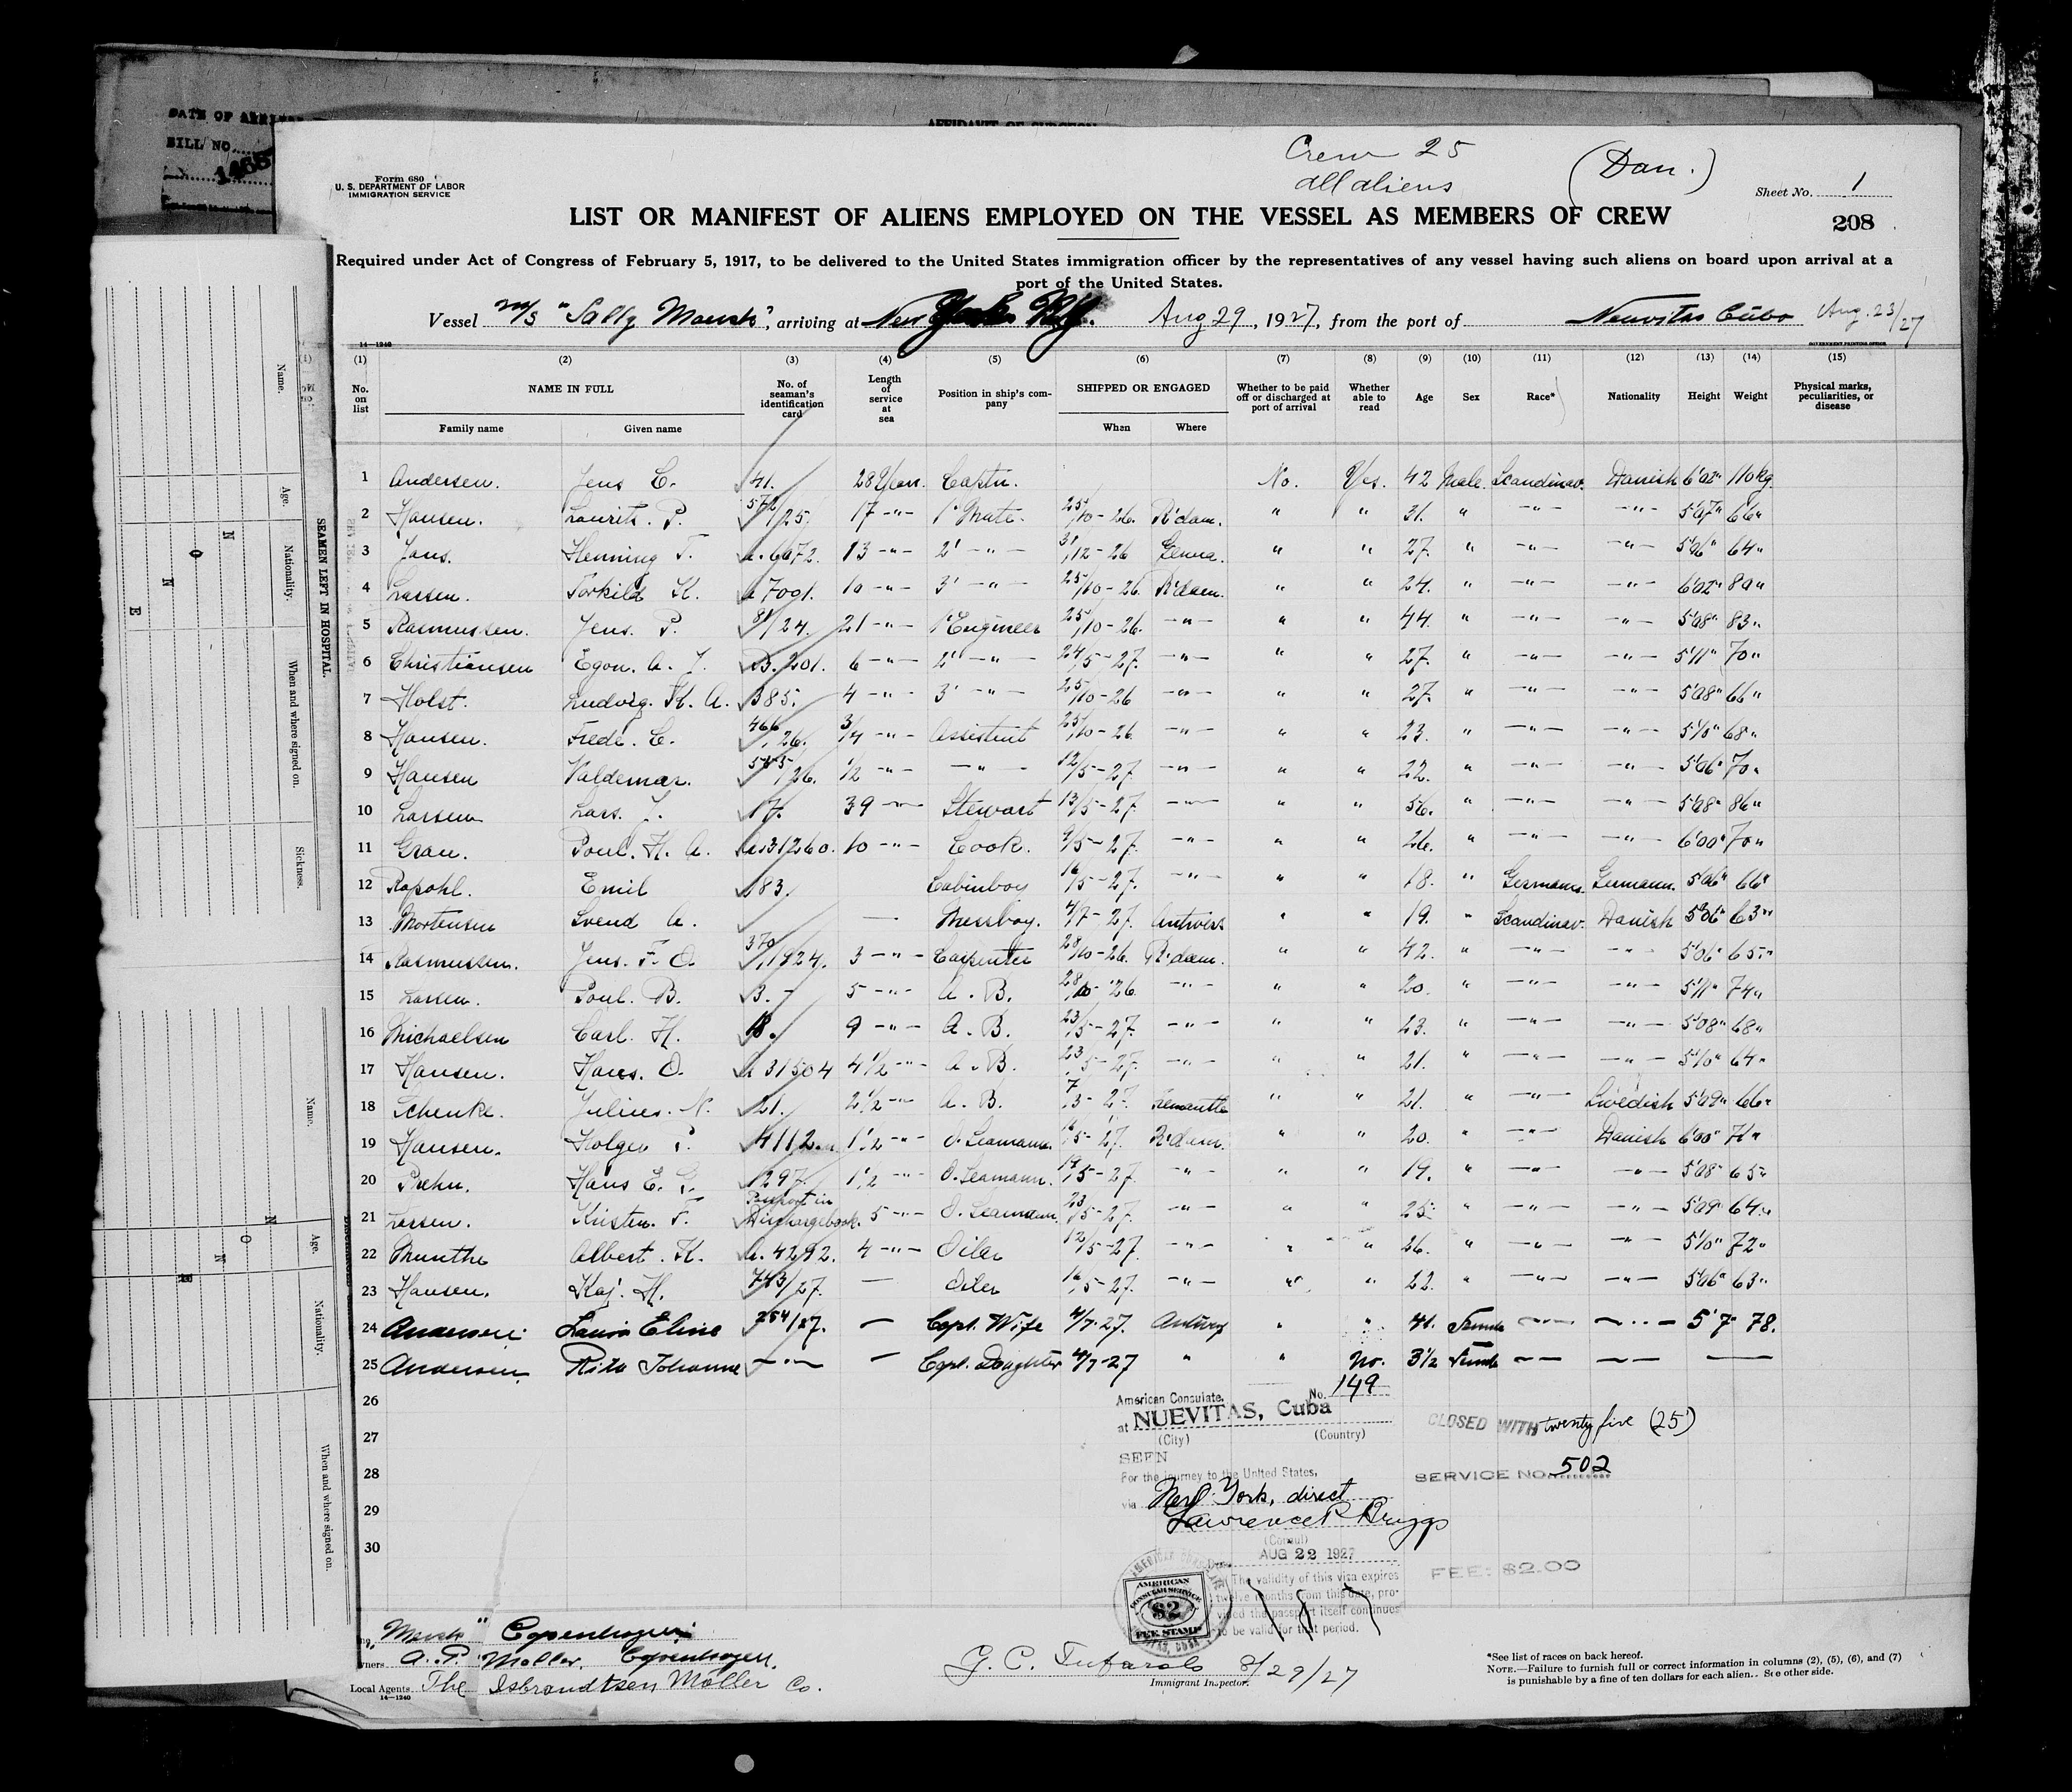 DATE OF
BILL NO.
AFFIDAVIT OF SURGEON
Crew 25
All aliens
(Dan.)
Form 680
U. S. DEPARTMENT OF LABOR
IMMIGRATION SERVICE
Sheet No. 1
LIST OR MANIFEST OF ALIENS EMPLOYED ON THE VESSEL AS MEMBERS OF CREW
208
Required under Act of Congress of February 5, 1917, to be delivered to the United States immigration officer by the representatives of any vessel having such aliens on board upon arrival at a
port of the United States.
Vessel M/S "Sally Maersk", arriving at New York Aug 29, 1927, from the port of Neuvitas Cuba Aug. 23/27
14—1240 GOVERNMENT PRINTING OFFICE
(1) (2) (3) (4) (5) (6) (7) (8) (9) (10) (11) (12) (13) (14) (15)
No. on list NAME IN FULL No. of seaman's identification card Length of service at sea Position in ship's company SHIPPED OR ENGAGED Whether to be paid off or discharged at port of arrival Whether able to read Age Sex Race* Nationality Height Weight Physical marks, peculiarities, or disease
Family name Given name When Where
1 Andersen. Jens C. 41. 28 Years. Captn. No. Yes. 42 Male. Scandinav. Danish 6'02" 110kg.
2 Hansen. Laurits. P. 572/25. 17 -"- 1' Mate. 25/10-26. R'dam. " " 31. " -"- -"- 5'07" 66"
3 Jans. Henning F. a. 6072. 13 -"- 2' -"- 31/12-26 Genua. " " 27. " -"- -"- 5'06" 64"
4 Larsen. Torkild K. a 7091. 10 -"- 3' -"- 25/10-26. R'dam. " " 24. " -"- -"- 6'02" 80"
5 Rasmussen. Jens. P. 81/24. 21 -"- 1' Engineer 25/10-26. -"- " " 44. " -"- -"- 5'08" 83"
6 Christiansen Egon. A. J. B. 201. 6 -"- 2' -"- 24/5-27. -"- " " 27. " -"- -"- 5'11" 70"
7 Holst. Ludvig. K. A. 385. 4 -"- 3' -"- 25/10-26 -"- " " 27. " -"- -"- 5'08" 66"
8 Hansen. Frede. C. 466/26. 3/4 -"- Assistent 25/10-26 -"- " " 23. " -"- -"- 5'10" 68"
9 Hansen Valdemar. 575/26. 1/2 -"- -"- 12/5-27. -"- " " 22. " -"- -"- 5'06" 70"
10 Larsen Lars. J. 17. 39 -"- Stewart 13/5-27. -"- " " 56. " -"- -"- 5'08" 86"
11 Grau. Poul. H. A. a 31260. 10 -"- Cook. 4/5-27. -"- " " 26. " -"- -"- 6'00" 70"
12 Rapohl. Emil 183. Cabinboy 16/5-27. -"- " " 18. " Germann. Germann. 5'06" 66"
13 Mortensen Svend A. — Messboy. 4/7-27. Antwers " " 19. " Scandinav. Danish 5'06" 63"
14 Rasmussen. Jens. F. O. 370/1924. 3 -"- Carpenter 28/10-26. R'dam. " " 42. " -"- -"- 5'06" 65"
15 Larsen. Poul. B. B. - 5 -"- A. B. 28/10-26. -"- " " 20. " -"- -"- 5'11" 74"
16 Michaelsen Carl. H. 18. 9 -"- A. B. 23/5-27. -"- " " 23. " -"- -"- 5'08" 68"
17 Hansen. Hans. O. a 31504 4 1/2 -"- A. B. 23/5-27. -"- " " 21. " -"- -"- 5'10" 64"
18 Schenke. Julius. N. 21. 2 1/2 -"- A. B. 7/3-27. Fremantle " " 21. " -"- Swedish 5'09" 66"
19 Hansen. Holger P. 4112 1 1/2 -"- O. Seamann. 16/5-27. R'dam. " " 20. " -"- Danish 6'00" 71"
20 Prehn. Hans E. G. 1297. 1 1/2 -"- O. Seamann. 19/5-27. -"- " " 19. " -"- -"- 5'08" 65"
21 Larsen. Kristen. F. Passport in Dischargebook. 5 -"- O. Seamann. 23/5-27. -"- " " 25. " -"- -"- 5'09" 64"
22 Munthe Albert. K. a. 4292. 4 -"- Oiler 12/5-27. -"- " " 26. " -"- -"- 5'10" 72"
23 Hansen. Kaj. H. 743/27. — Oiler 16/5-27. -"- " " 22. " -"- -"- 5'06" 63"
24 Andersen. Laura Eline 254/27. — Capt. Wife 4/7-27. Antwerp " " 41. Female -"- -"- 5'7" 78.
25 Andersen. Rita Johanne -"- — Capt. Daughter 4/7-27 " " No. 3 1/2 Female -"- -"- —
26
27
28
29
30
American Consulate. No. 149
at NUEVITAS, Cuba
(City) (Country)
SEEN
For the journey to the United States,
via New York, direct
Lawrence P. Briggs
(Consul)
Date AUG 22 1927
The validity of this visa expires
twelve months from this date, pro-
vided the passport itself continues
to be valid for that period.
CLOSED WITH twenty five (25)
SERVICE NO. 502
FEE: $2.00
AMERICAN
CONSULAR SERVICE
$2
FEE STAMP
"Maersk" Copenhagen.
Owners A. P. Möller, Copenhagen.
Local Agents The Isbrandtsen Möller Co.
14—1240
G. C. Tufarolo 8/29/27
Immigrant Inspector.
*See list of races on back hereof.
NOTE.—Failure to furnish full or correct information in columns (2), (5), (6), and (7)
is punishable by a fine of ten dollars for each alien. See other side.
SEAMEN LEFT IN HOSPITAL.
Name.
Age.
Nationality.
When and where signed on.
Sickness.
N O N E
Name.
Age.
Nationality.
When and where signed on.
N O N E